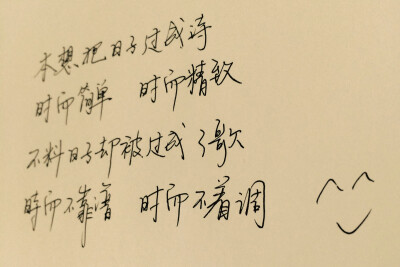 本想把日子过成诗
时而简单 时而精致
不料日子却被过成了歌
时而不靠谱 时而不着调